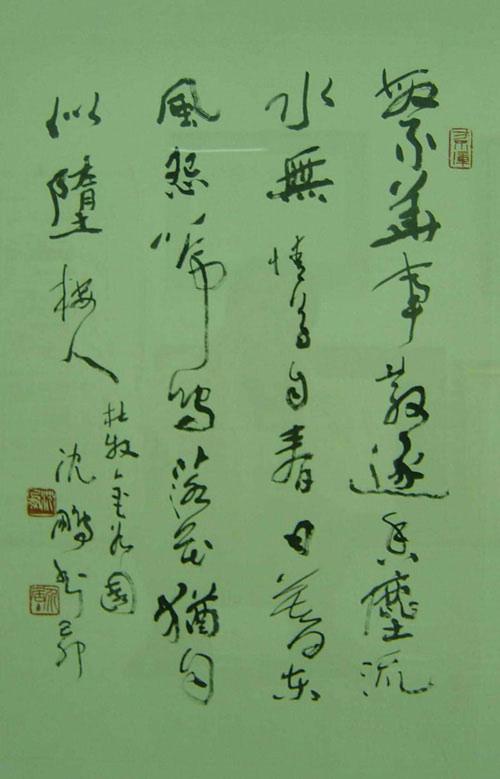 繁華事散逐香塵流
水無情草自春日暮東
風怨啼鳥落花猶自
似墮楼人
杜牧金谷園
沈鵬書己卯